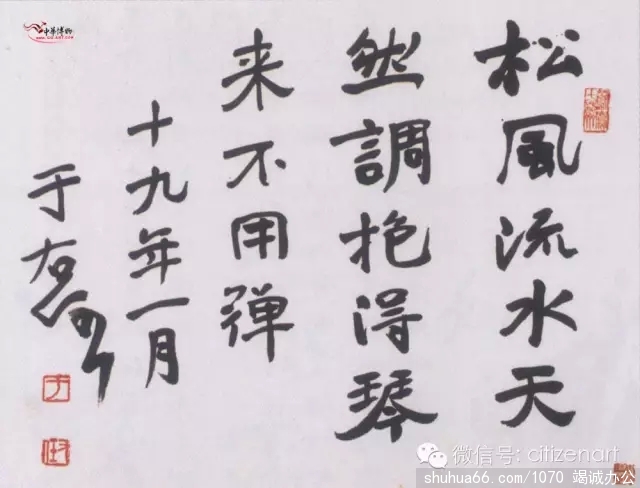 松風流水天
然調抱得琴
来不用彈
十九年一月
于右任
中华博物
微信号: citizenart
shuhua66.com/1070 竭诚办公